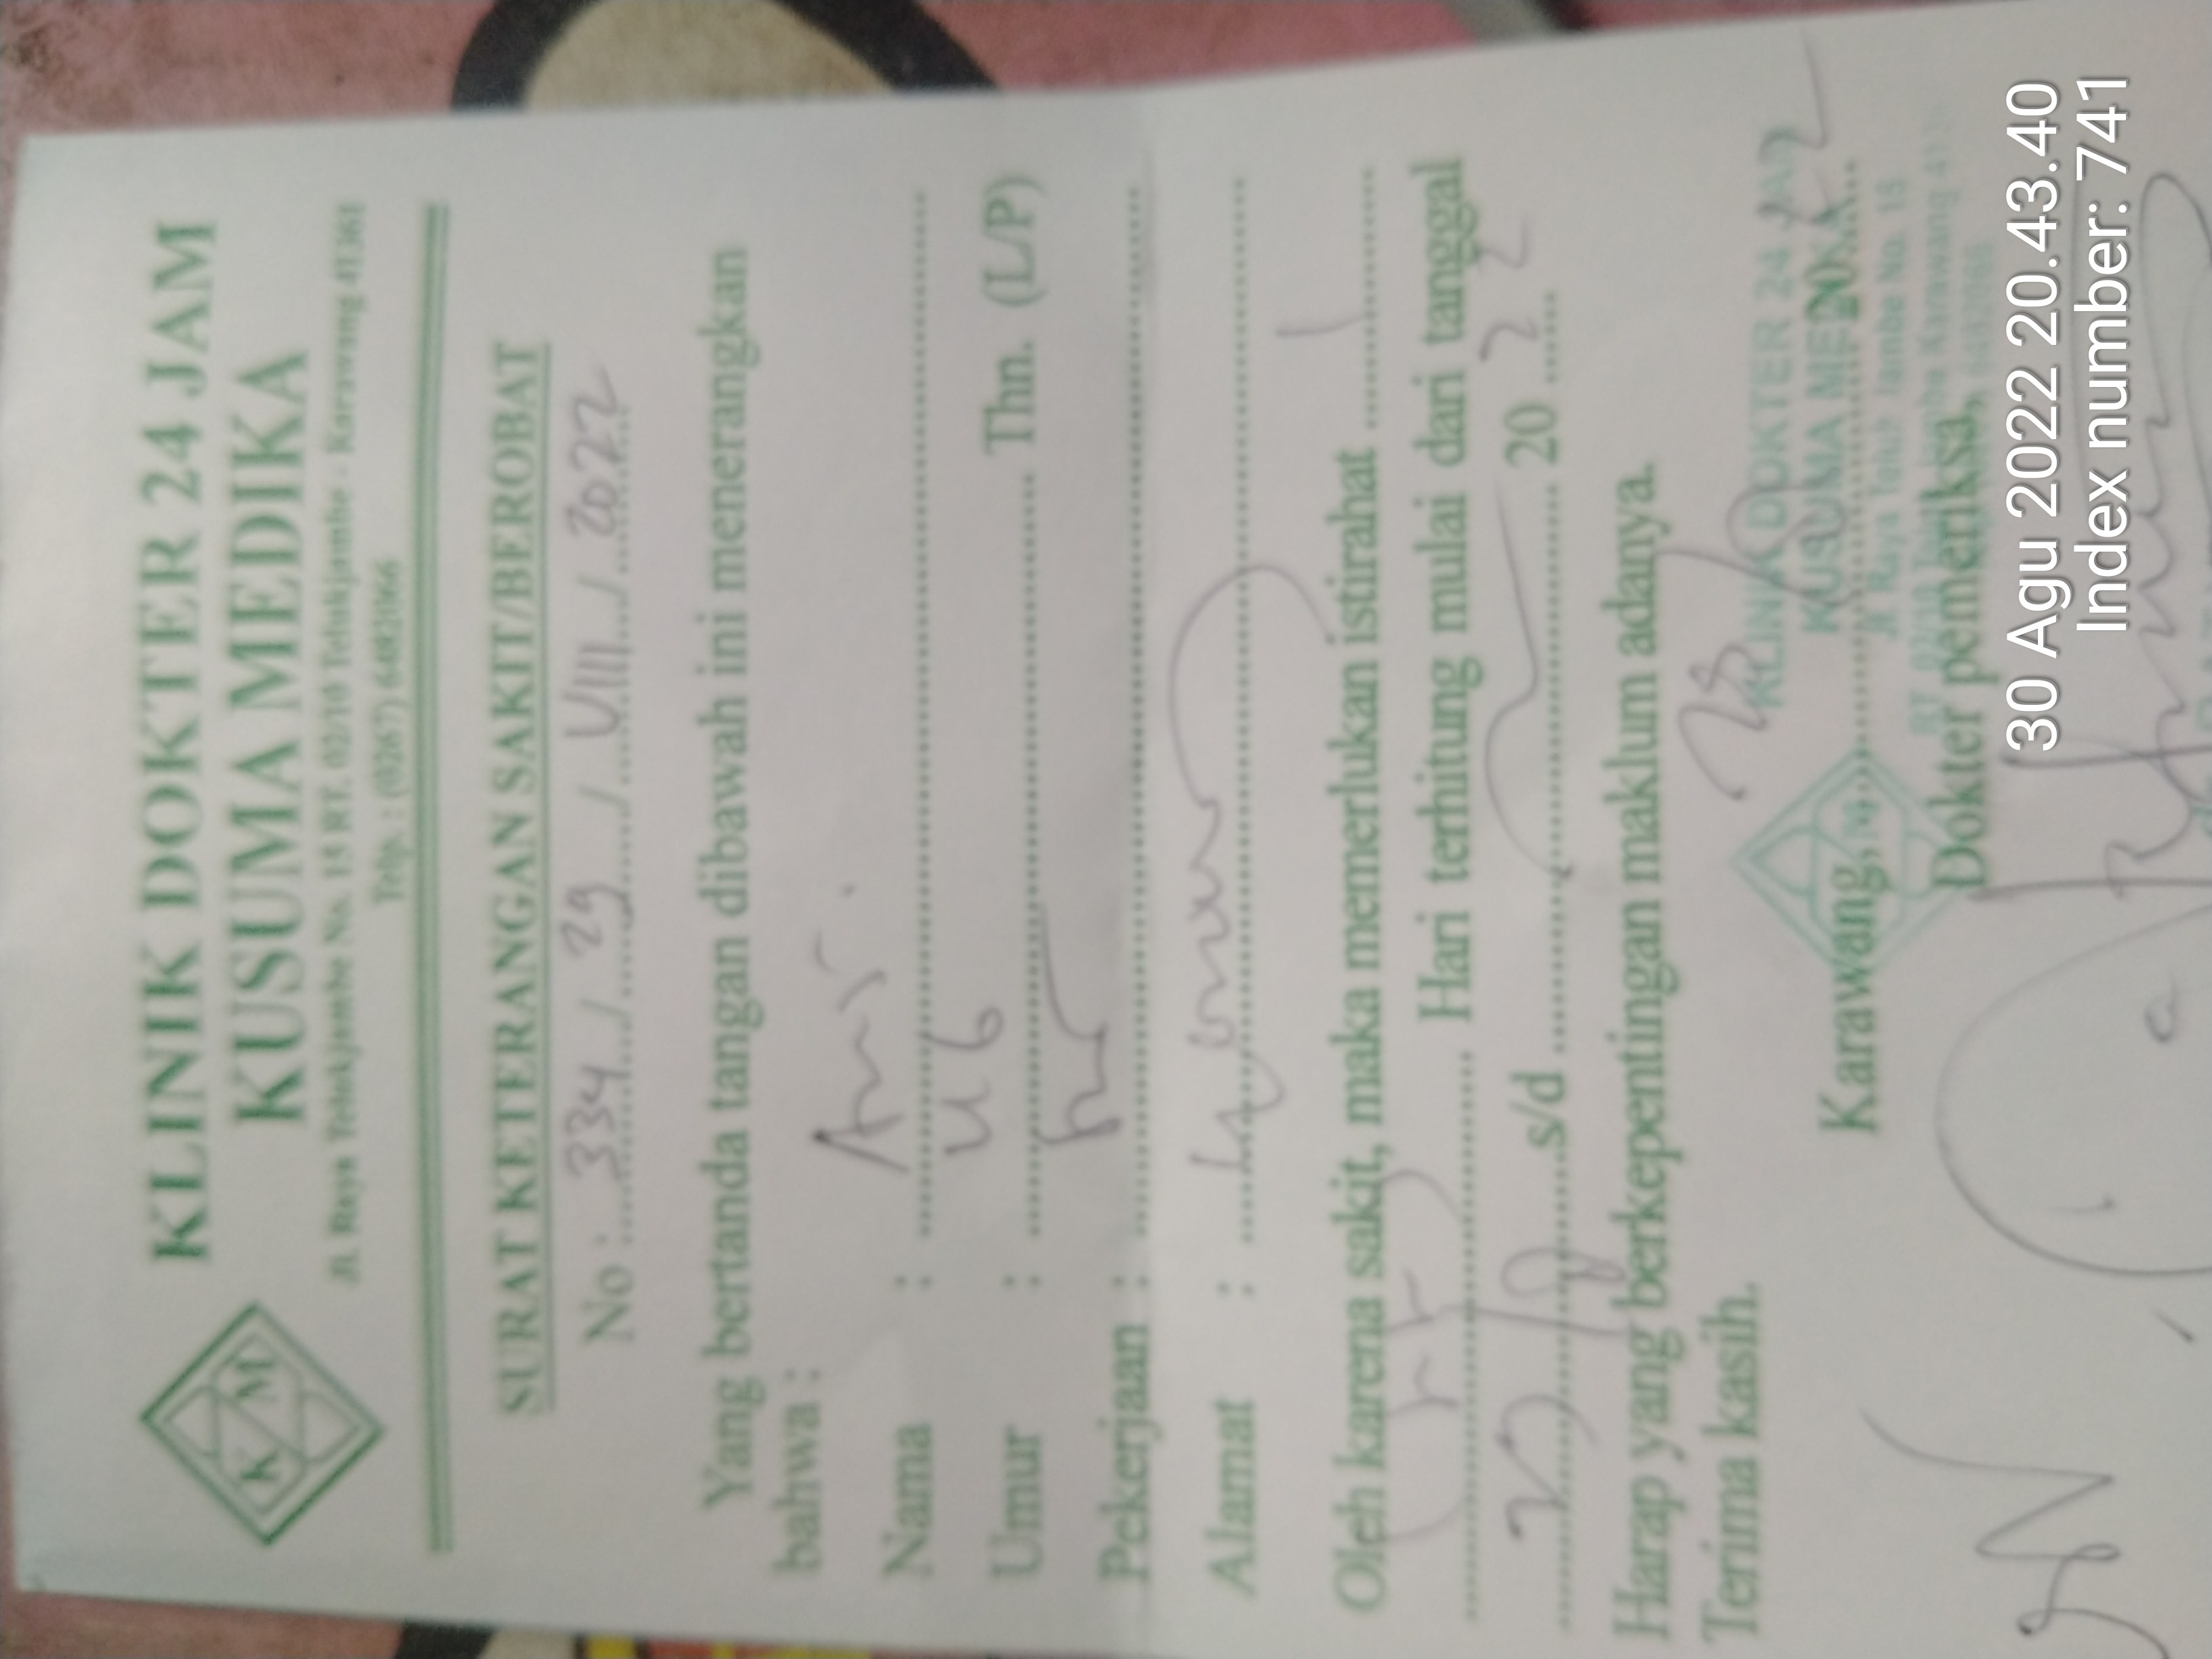 KLINIK DOKTER 24 JAM
KUSUMA MEDIKA
K M
Jl. Raya Telukjambe No. 15 RT. 02/10 Telukjambe - Karawang 41361
Telp. : (0267) 6482066
SURAT KETERANGAN SAKIT/BEROBAT
No : 334 / 29 / VIII / 2022
Yang bertanda tangan dibawah ini menerangkan
bahwa :
Nama :
Umur : 46 Thn. (L/P)
Pekerjaan :
Alamat :
Oleh karena sakit, maka memerlukan istirahat 1
Hari terhitung mulai dari tanggal
29/8 s/d 20 22
Harap yang berkepentingan maklum adanya.
Terima kasih.
KLINIK DOKTER 24 JAM
KUSUMA MEDIKA
Karawang, 20 22
Jl. Raya Teluk Jambe No. 15
RT. 02/10 Teluk Jambe Karawang
Dokter pemeriksa,
30 Agu 2022 20.43.40
Index number: 741